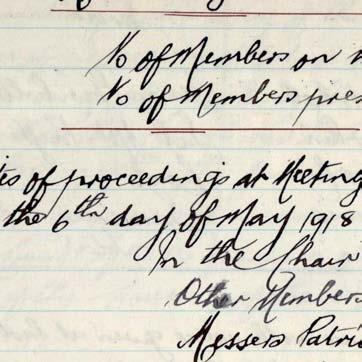 No of Members on
No of Members pres
es of proceedings at Meeting
the 6th day of May 1918
In the Chair
Other Members
Messers Patri